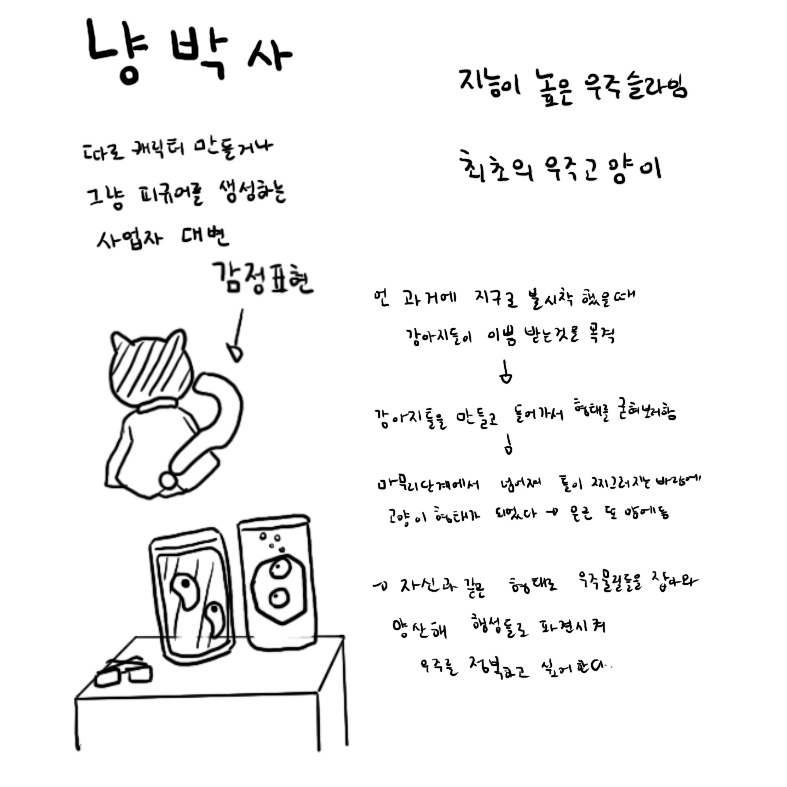 냥박사
따로 캐릭터 만들거나
그냥 피규어를 생성하는
사업자 대변
감정표현
지능이 높은 우주슬라임
최초의 우주고양이
언 과거에 지구로 불시착 했을때
강아지들이 이쁨 받는것을 목격
강아지틀을 만들고 들어가서 형태를 굳혀보려함
마무리단계에서 넘어져 틀이 찌그러지는 바람에
고양이 형태가 되었다 → 은근 또 맘에듬
→ 자신과 같은 형태로 우주물질들을 잡아와
양산해 행성들로 파견시켜
우주를 정복하고 싶어한다.